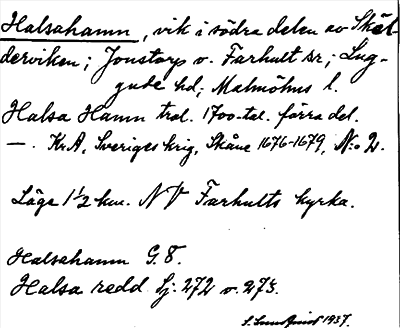 Halsahamn, vik i södra delen av Skäl-
derviken; Jonstorp o. Farhult sr; Lug-
gude hd; Malmöhus l.
Halsa Hamn trol. 1700-tal. förra del.
—. Kr.A, Sveriges krig, Skåne 1676-1679, N:o 2.
Läge 1 1/2 km. NV Farhults kyrka.
Halsahamn G.8.
Halsa redd Sj: 272 o. 273.
S. 1937.